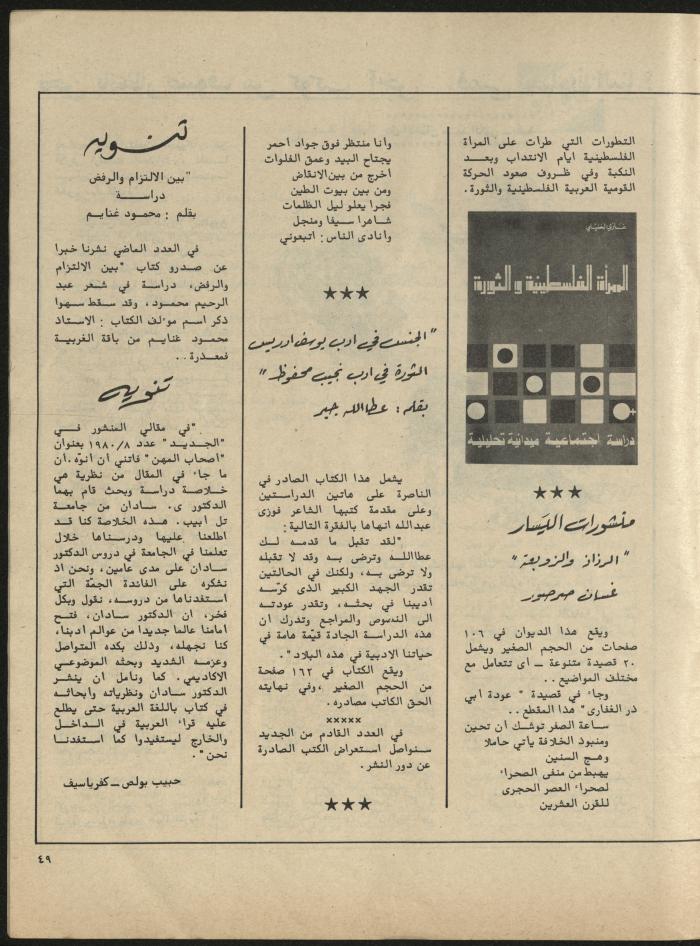 التطورات التي طرات على المراة
الفلسطينية ايام الانتداب وبعـد
النكبة وفي ظـروف صعود الحركة
القومية العربية الفلسطينية والثورة.
غازي الخليلي
المرأة الفلسطينية والثورة
دراسة اجتماعية ميدانية تحليلية
★★★
منشورات اليسار
"الرذاذ والزوبعة"
غسان صرصور
ويقع هذا الديوان في ١٠٦
صفحات من الحجم الصغير ويشمل
٢٠ قصيدة متنوعة — اى تتعامل مع
مختلف المواضيع..
وجاء في قصيدة "عودة ابي
ذر الغفارى" هذا المقطع..
ساعة الصفر توشك ان تحين
ومنبوذ الخلافة يأتي حاملا
وهج السنين
يهبط من منفى الصحراء
لصحراء العصر الحجرى
للقرن العشرين
وانا منتظر فوق جواد احمر
يجتاح البيد وعمق الفلوات
اخرج من بين الانقاض
ومن بين بيوت الطين
فجرا يعلو ليل الظلمات
شاهرا سيفا ومنجل
وانادى الناس: اتبعوني
★★★
"الجنس في ادب يوسف ادريس
الثورة في ادب نجيب محفوظ"
بقلم: عطاالله جبر
يشمل هذا الكتاب الصادر في
الناصرة على هاتين الدراستين
وعلى مقدمة كتبها الشاعر فوزى
عبدالله انهاها بالفقرة التالية:
"لقد تقبل ما قدمه لـك
عطااللـه وترضى بـه وقد لا تقبله
ولا ترضى بـه، ولكنك في الحالتين
تقدر الجهد الكبير الذى كرّسـه
أديبنا في بحثـه، وتقدر عودتـه
الى النصوص والمراجع وتدرك ان
هذه الدراسة الجادة قيّمة هامة في
حياتنا الادبية في هذه البلاد".
ويقع الكتاب في ١٦٢ صفحة
من الحجم الصغير، وفي نهايته
الحق الكاتب مصادره.
×××××
في العدد القادم من الجديد
سنواصل استعراض الكتب الصادرة
عن دور النشر.
★★★
تنويه
"بين الالتزام والرفض
دراسـة
بقلم: محمود غنايم
في العدد الماضي نشرنا خبرا
عن صدرو كتاب "بين الالتزام
والرفض، دراسة في شعر عبد
الرحيم محمود، وقد سـقط سـهوا
ذكر اسم مؤلف الكتاب: الاستاذ
محمود غنايم من باقة الغربية
فمعذرة..
تنويه
"في مقالي المنشور فـي
"الجديد" عدد ١٩٨٠/٨ بعنوان
"اصحاب المهن" فاتني ان أنوّه.ان
ما جاء في المقال من نظرية هي
خلاصـة دراسـة وبحث قام بهما
الدكتور ى. سادان من جامعـة
تل ابيب. هـذه الخلاصة كنا قـد
اطلعنا عليها ودرسناها خلال
تعلمنا في الجامعة في دروس الدكتور
سادان على مدى عامين، ونحن اذ
نشكره على الفائدة الجمّة التي
استفدناها من دروسـه، نقول وبكلّ
فخر، ان الدكتور سـادان، فتـح
أمامنا عالما جديدا من عوالم ادبنا،
كنا نجهله، وذلك بكده المتواصل
وعزمـه الشديد وبحثه الموضوعـي
الاكاديمي. كما ونأمل ان ينشـر
الدكتور سادان ونظرياته وابحاثـه
في كتاب باللغة العربية حتى يطلع
عليه قراء العربية في الداخـل
والخارج ليستفيدوا كما استفدنـا
نحن".
حبيب بولص — كفرياسيف
٤٩